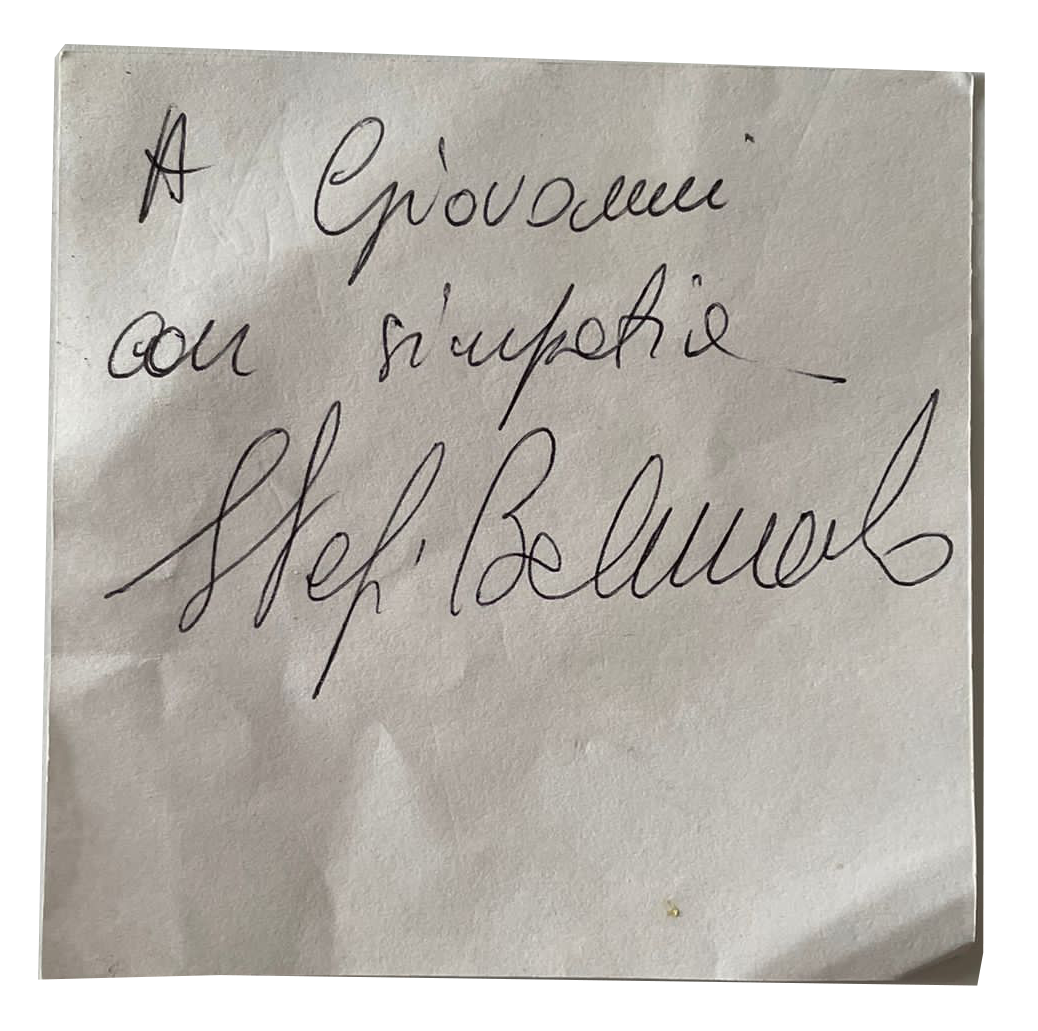 A Giovanni
con simpatia
Stefi